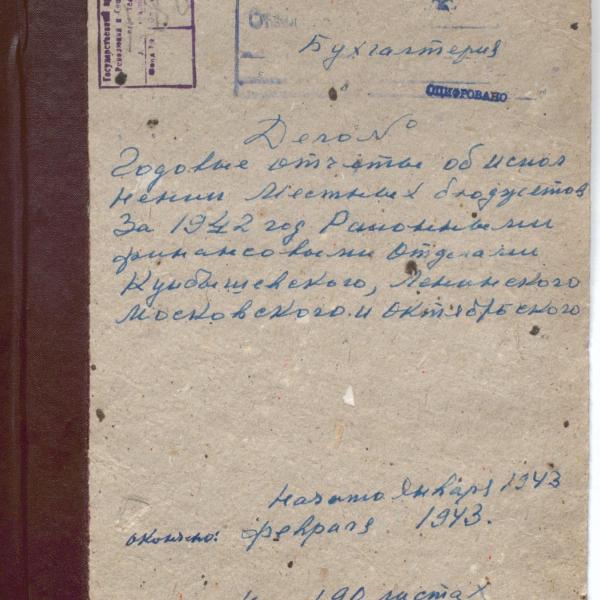 Государственный
Фонд №
Отдел
Бухгалтерия
ОЦИФРОВАНО
Дело №
Годовые отчеты об испол
нении Местных бюджетов
За 1942 год Районными
финансовыми отделами
Куйбышевского, Ленинского
Московского и Октябрьского
Начато Января 1943
окончено: февраля 1943.
190 листах